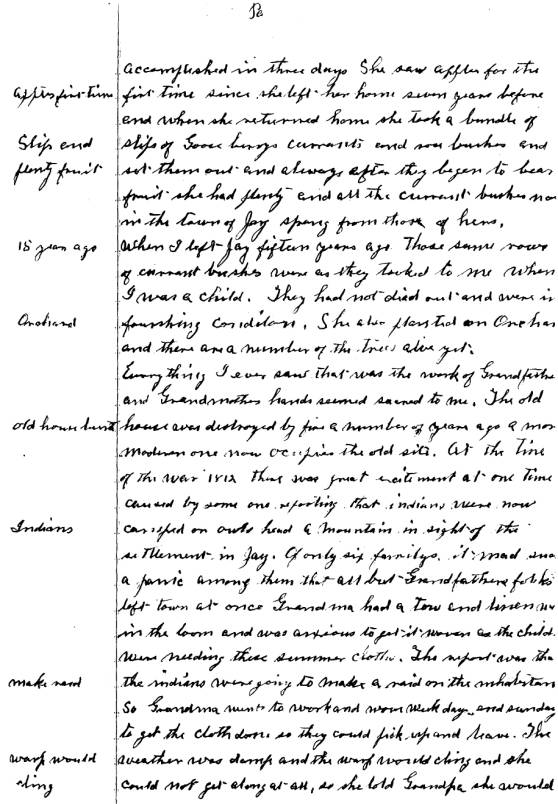 accomplished in three days She saw apples for the
apples first time first time since she left her home seven years before
and when she returned home she took a bundle of
Slips and slips of Goose berrys currants and rose bushes and
plenty fruit set them out and always after they began to bear
fruit she had plenty and all the currant bushes now
in the town of Jay sprang from those of hers,
15 years ago When I left Jay fifteen years ago Those same rows
of currant bushes were as they looked to me when
I was a child. They had not died out and were in
Orchard flourishing condition. She also planted an Orchar
and there are a number of the trees alive yet.
Everything I ever saw that was the work of Grandfather
and Grandmothers hands seemed sacred to me. The old
old house burnt house was destroyed by fire a number of years ago a mor
modern one now occupies the old site. At the time
of the war 1812 there was great excitement at one time
caused by some one reporting that indians were now
Indians on owls head a mountain in sight of the
settlement in Jay. Of only six familys. it mad
a panic among them that all but Grandfathers folks
left town at once Grandma had a tow and linen
in the loom and was anxious to get it woven as the child.
were needing these summer cloths. The report was tha
make raid the indians were going to make a raid on the inhabitan
So Grandma went to work and wove week day and sunday
to get the cloth done so they could pick up and leave. The
warp would weather was damp and the warp would cling and she
cling could not get along at all, so she told Grandpa she would